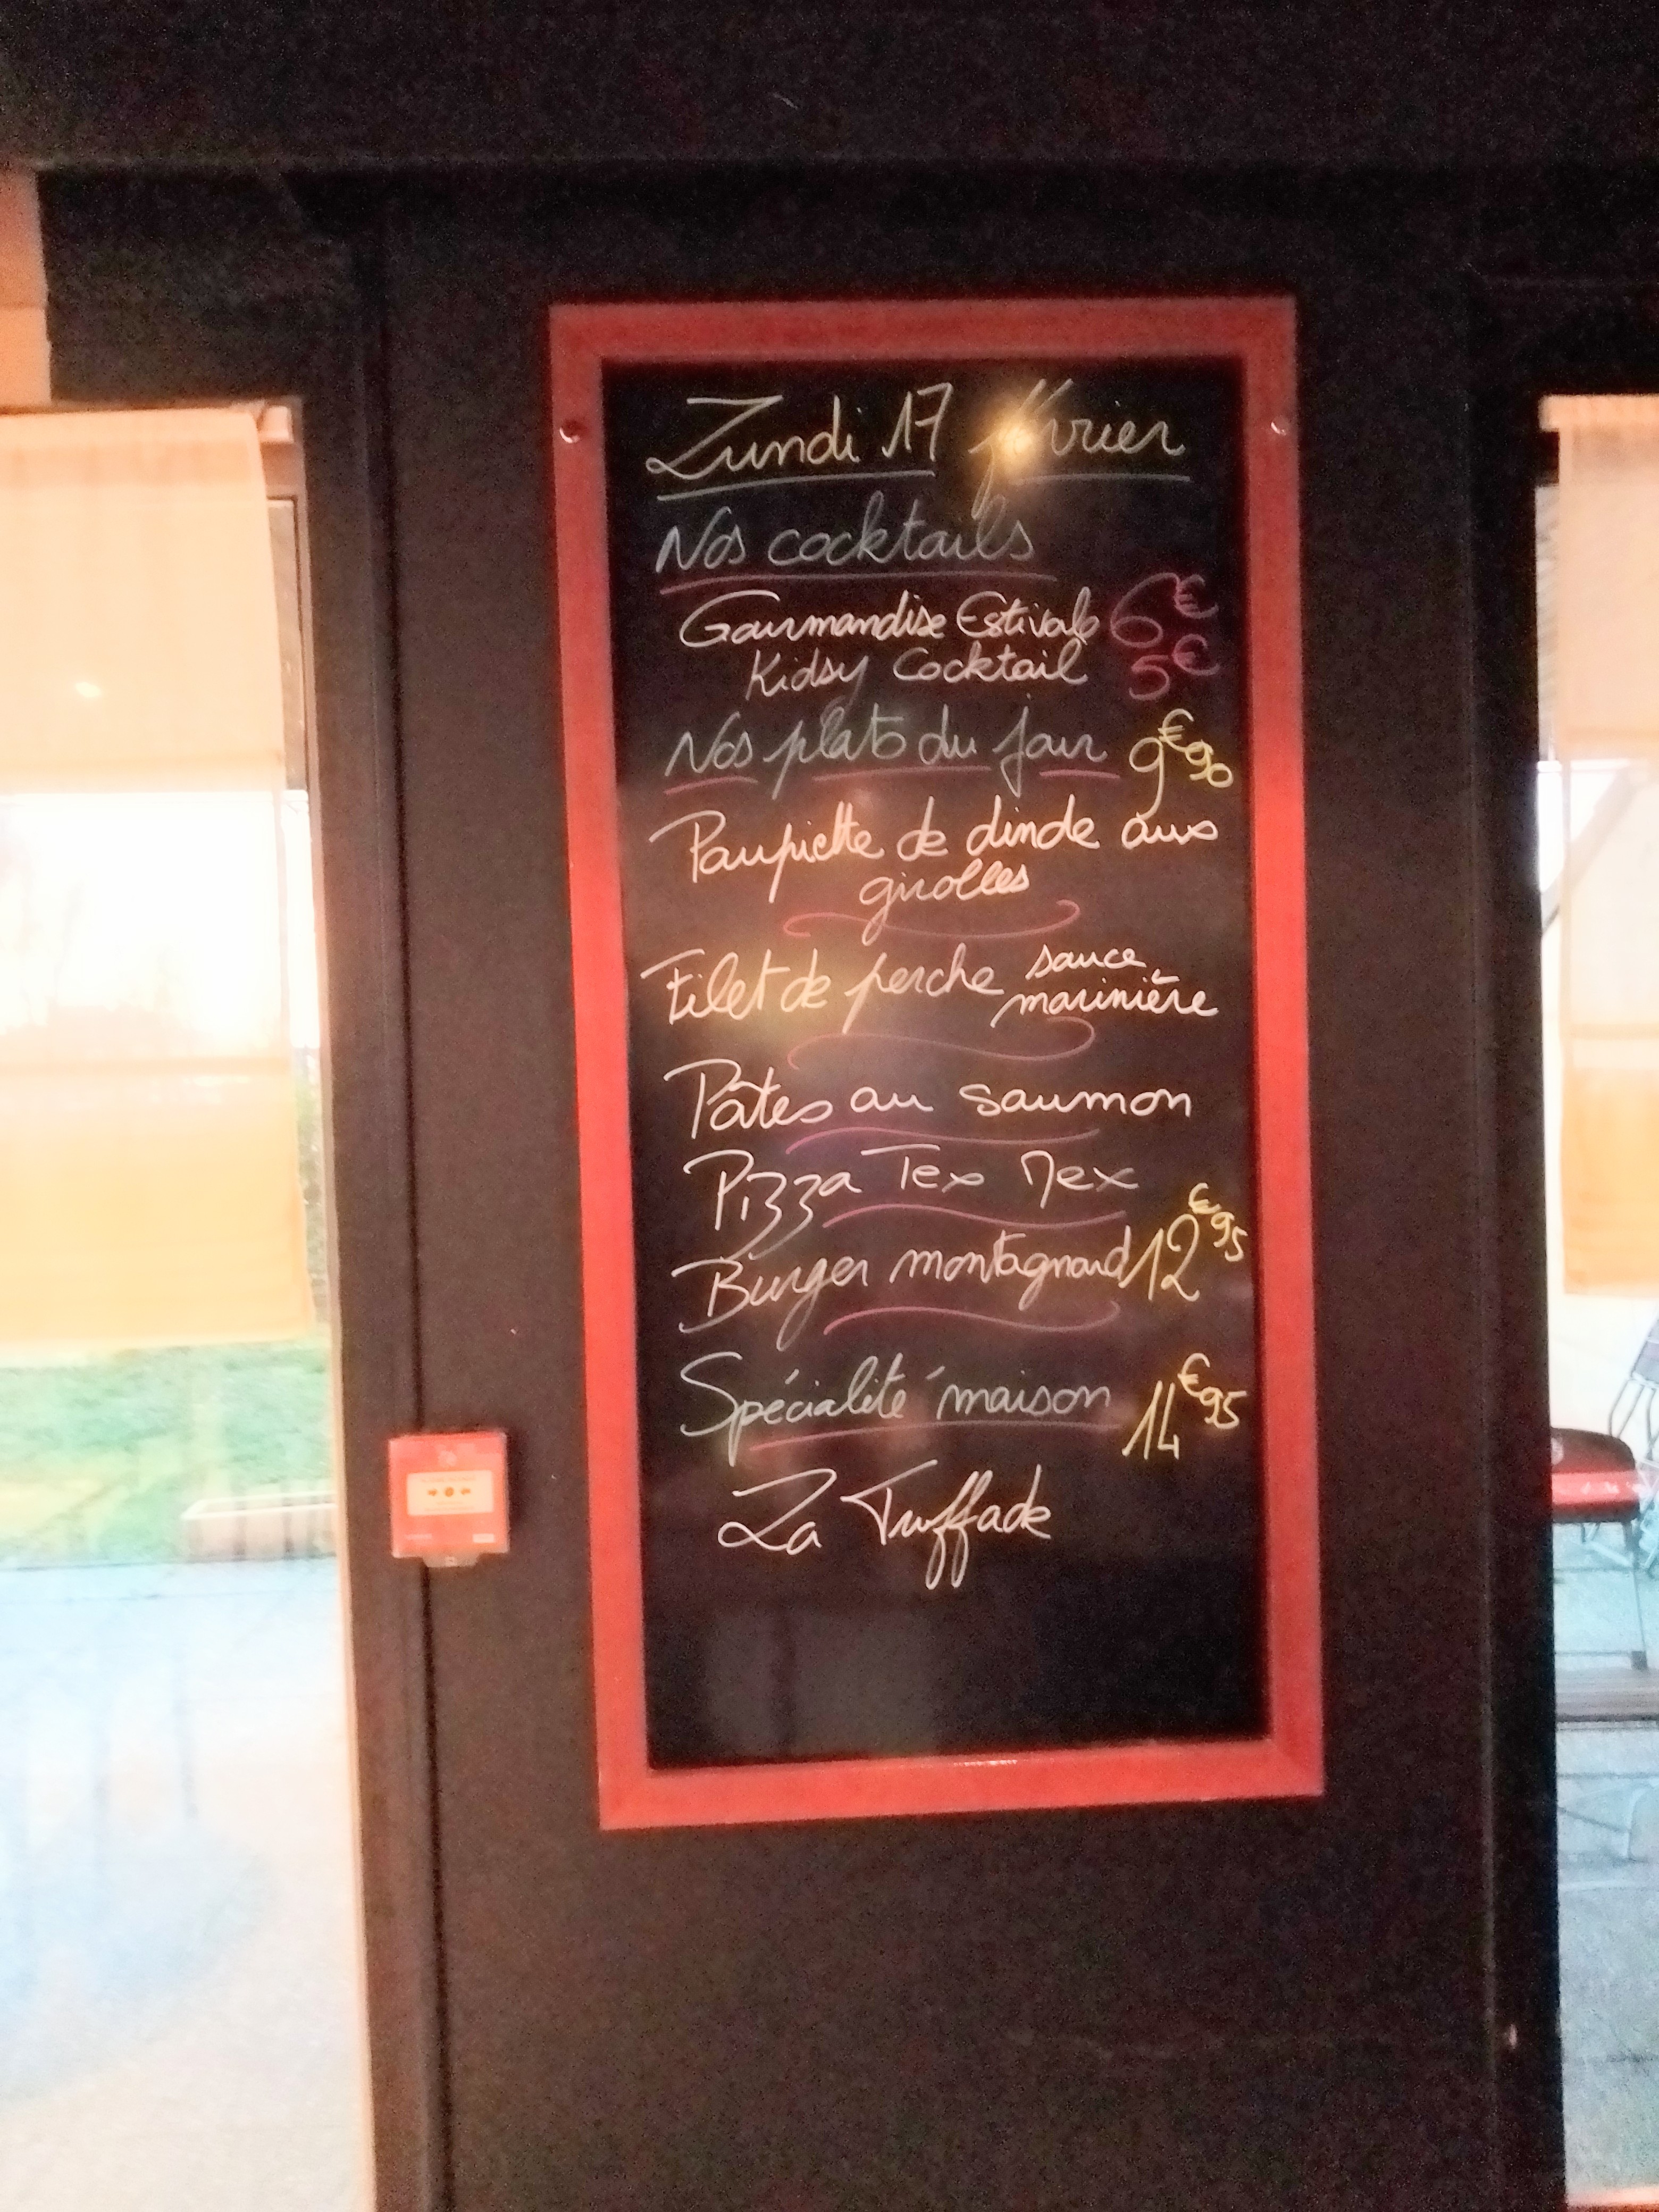 Lundi 17 février
Nos cocktails
Gourmandise Estivale 6€
Kidsy Cocktail 5€
Nos plats du jour 9€90
Paupiette de dinde aux
girolles
Filet de perche sauce
marinière
Pâtes au saumon
Pizza Tex Mex
Burger montagnard 12€95
Spécialité maison 14€95
La Truffade